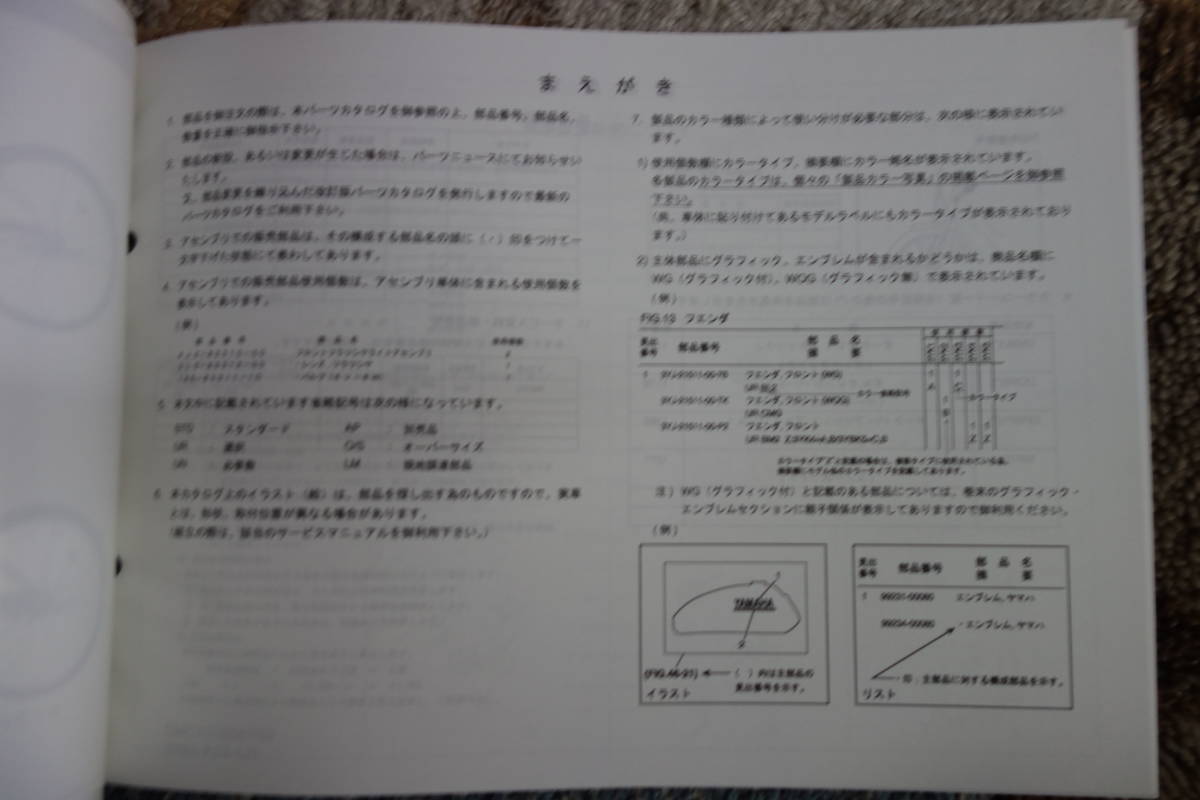 まえがき
1. 部品を御注文の際は、本パーツカタログを御参照の上、部品番号、部品名、
数量を正確に御指示下さい。
2. 部品の新設、あるいは変更が生じた場合は、パーツニュースにてお知らせい
たします。
又、部品変更を織り込んだ改訂版パーツカタログを発行しますので最新の
パーツカタログをご利用下さい。
3. アセンブリでの販売部品は、その構成する部品名の頭に(・)印をつけて一
文字下げた状態にて表わしてあります。
4. アセンブリでの販売部品使用個数は、アセンブリ単体に含まれる使用個数を
表示してあります。
(例)
部品番号 部品名
5. 本文中に記載されています省略記号は次の様になっています。
STD : スタンダード AP : 別売品
UR : 選択 O/S : オーバーサイズ
UN : 必要数 LM : 現地調達部品
6. 本カタログ上のイラスト(絵)は、部品を探し出す為のものですので、実車
とは、形状、取付位置が異なる場合があります。
(組立の際は、該当のサービスマニュアルを御利用下さい。)
7. 部品のカラー種類によって使い分けが必要な部分は、次の様に表示されてい
ます。
1) 使用個数欄にカラータイプ、摘要欄にカラー略名が表示されています。
各部品のカラータイプは、個々の「製品カラー写真」の掲載ページを御参照
下さい。
(尚、車体に貼り付けてあるモデルラベルにもカラータイプが表示されており
ます。)
2) 主体部品にグラフィック、エンブレムが含まれるかどうかは、部品名欄に
WG(グラフィック付)、WOG(グラフィック無)で表示されています。
(例)
FIG.13 フエンダ
見出番号 部品番号 部品名 摘要
1 フエンダ,フロント(WG)
フエンダ,フロント(WOG)
カラータイプ
フエンダ,フロント
注)WG(グラフィック付)と記載のある部品については、巻末のグラフィック・
エンブレムセクションに親子関係が表示してありますので御利用ください。
(例)
YAMAHA
1
2
(FIG.44-21) ( )内は主部品の
見出番号を示す。
イラスト
見出番号 部品番号 部品名 摘要
1 エンブレム,ヤマハ
・エンブレム,ヤマハ
・印:主部品に対する構成部品を示す。
リスト